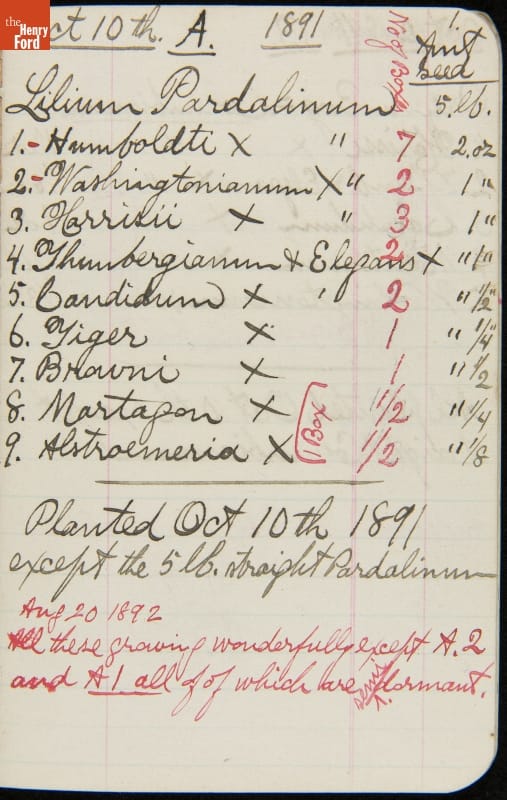 the Henry Ford
Oct 10th. A. 1891 1.
No of Boxes Amt Seed
Lilium Pardalinum 5.lb.
1.- Humboldti X " 7 2.oz
2.- Washingtonianum X " 2 1 "
3. Harrisii X " 3 1"
4. Thumbergianum & Elegans X 2 " 1"
5. Candidum X " 2 " 1/2"
6. Tiger X 1 " 1/4"
7. Browni X 1 " 1/2
8. Martagon X 1/2 " 1/4
1 Box
9. Alstroemeria X 1/2 " 1/8
Planted Oct 10th 1891
except the 5 lb. straight Pardalinum
Aug 20 1892
All these growing wonderfully except A.2
and A1 all of of which are semi dormant.